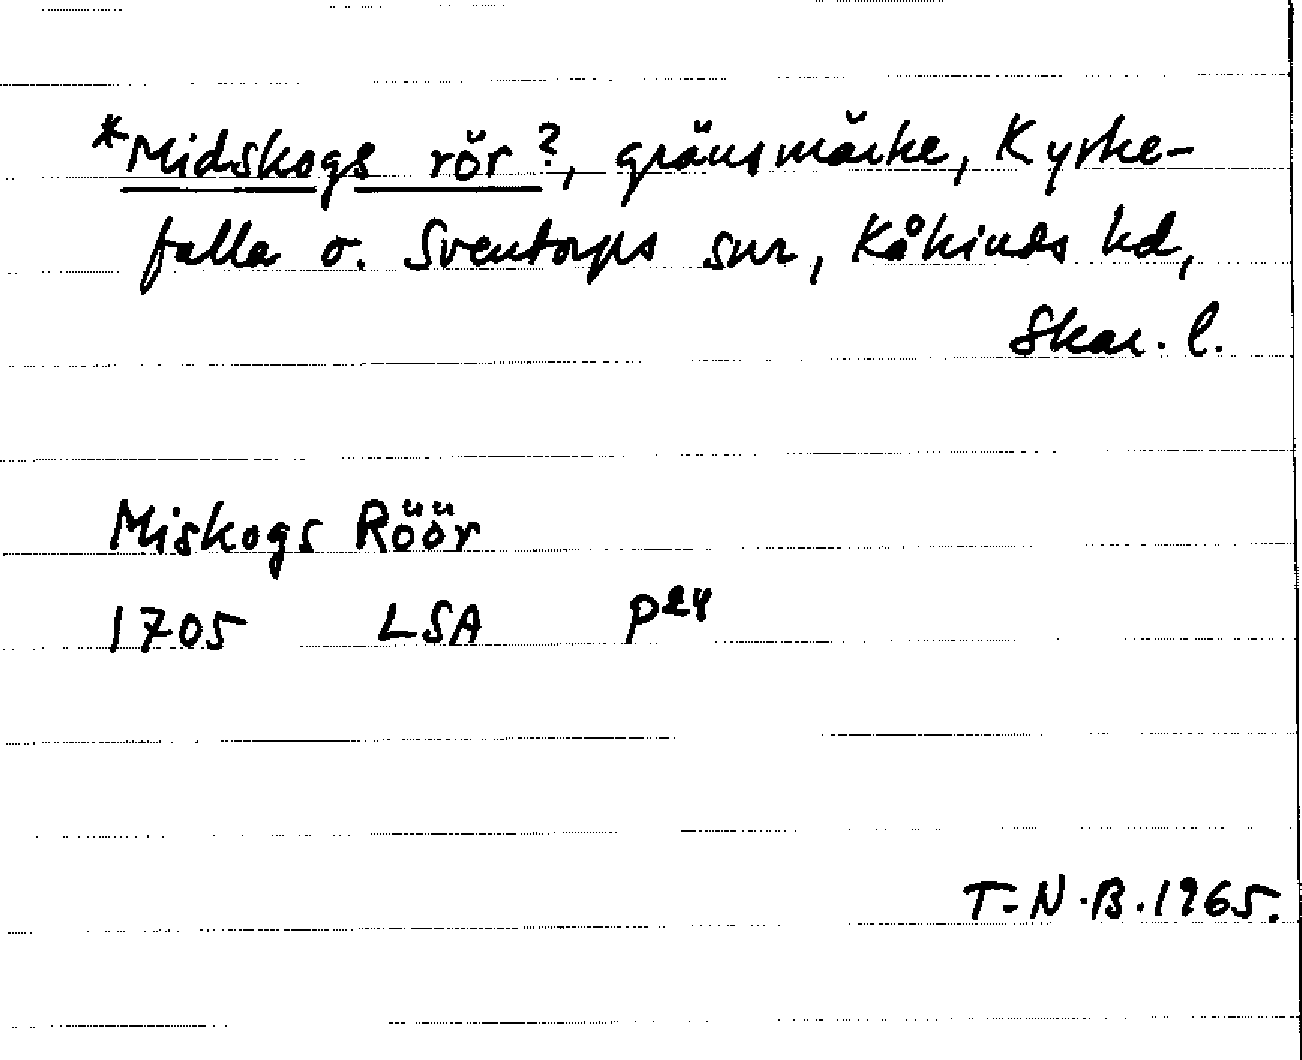 *Midskogs rör?, gränsmärke, Kyrke-
falla o. Sventorps snr, Kåkinds hd,
Skar. l.
Miskogs Röör
1705 LSA P24
T-N.B.1965.